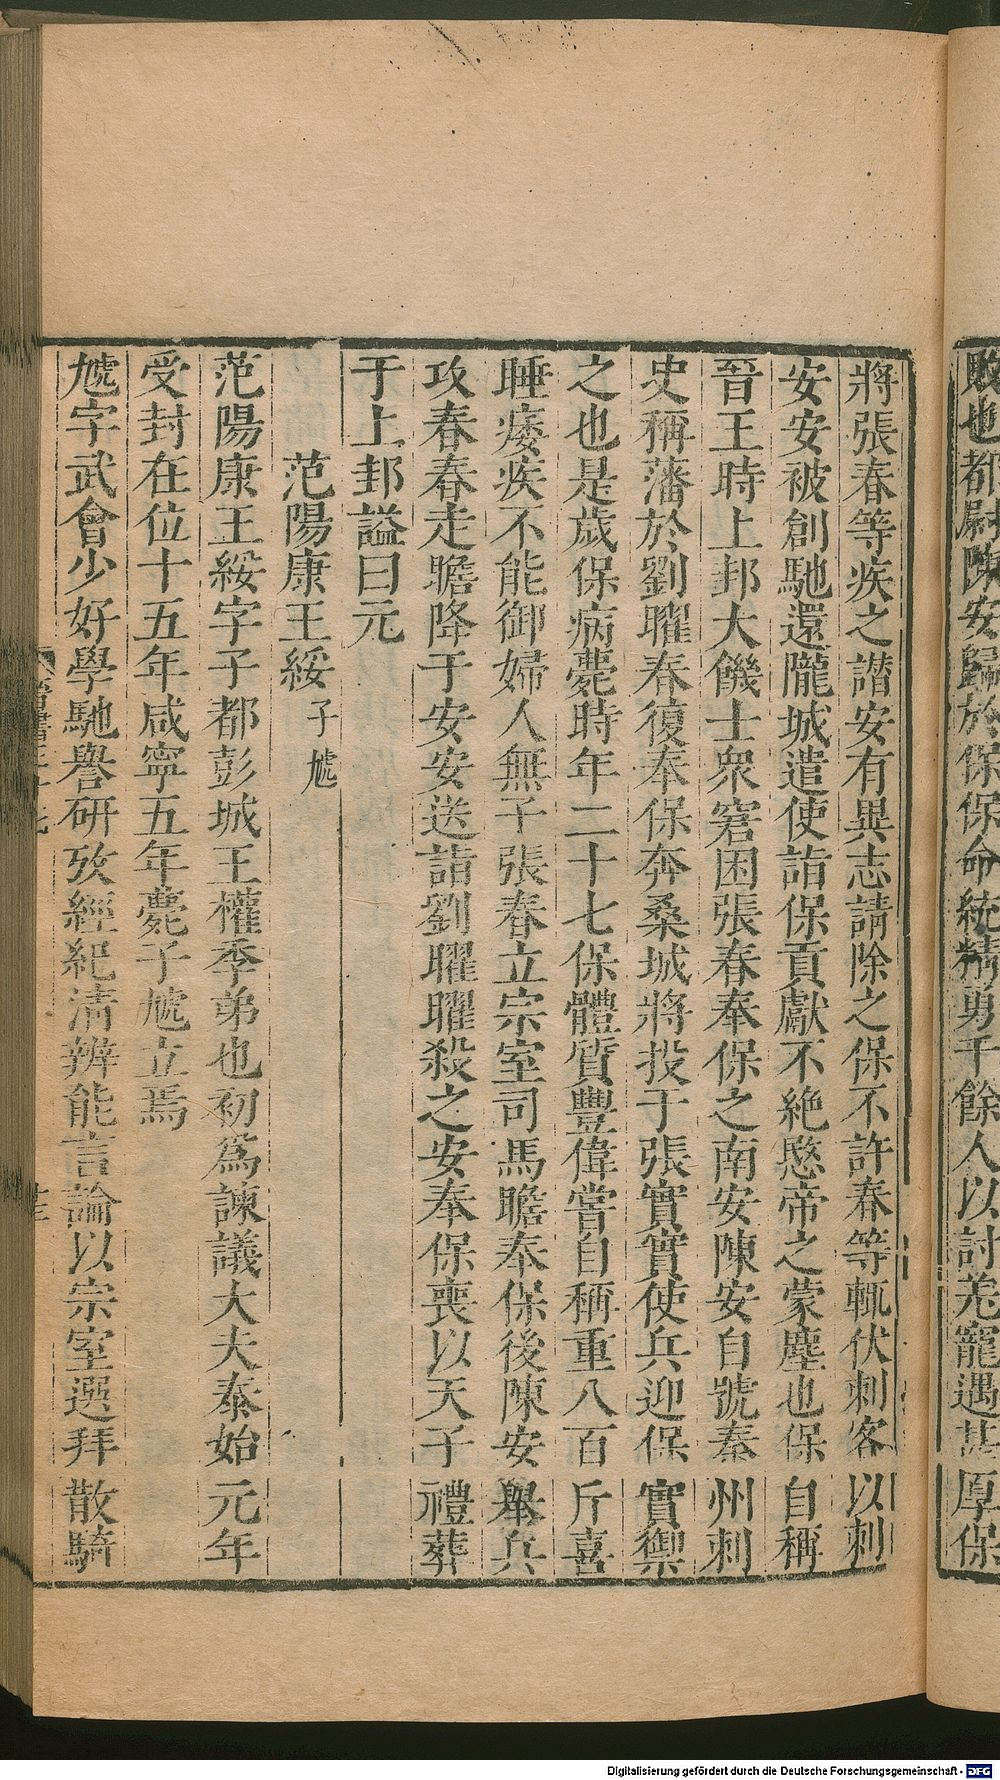 敗也都尉陳安歸於保保命統精勇千餘人以討羌寵遇甚厚保
將張春等疾之譖安有異志請除之保不許春等輒伏刺客以刺
安安被創馳還隴城遣使詣保貢獻不絶愍帝之蒙塵也保自稱
晉王時上邽大饑士衆窘困張春奉保之南安陳安自號秦州刺
史稱藩於劉曜春復奉保奔桑城將投于張實實使兵迎保實禦
之也是歲保病薨時年二十七保體質豐偉嘗自稱重八百斤喜
睡痿疾不能御婦人無子張春立宗室司馬瞻奉保後陳安舉兵
攻春春走瞻降于安安送詣劉曜曜殺之安奉保喪以天子禮葬
于上邽謚曰元
范陽康王綏 子虓
范陽康王綏字子都彭城王權季弟也初爲諫議大夫泰始元年
受封在位十五年咸寧五年薨子虓立焉
虓字武會少好學馳譽研攷經紀清辨能言論以宗室選拜散騎
Digitalisierung gefördert durch die Deutsche Forschungsgemeinschaft - DFG